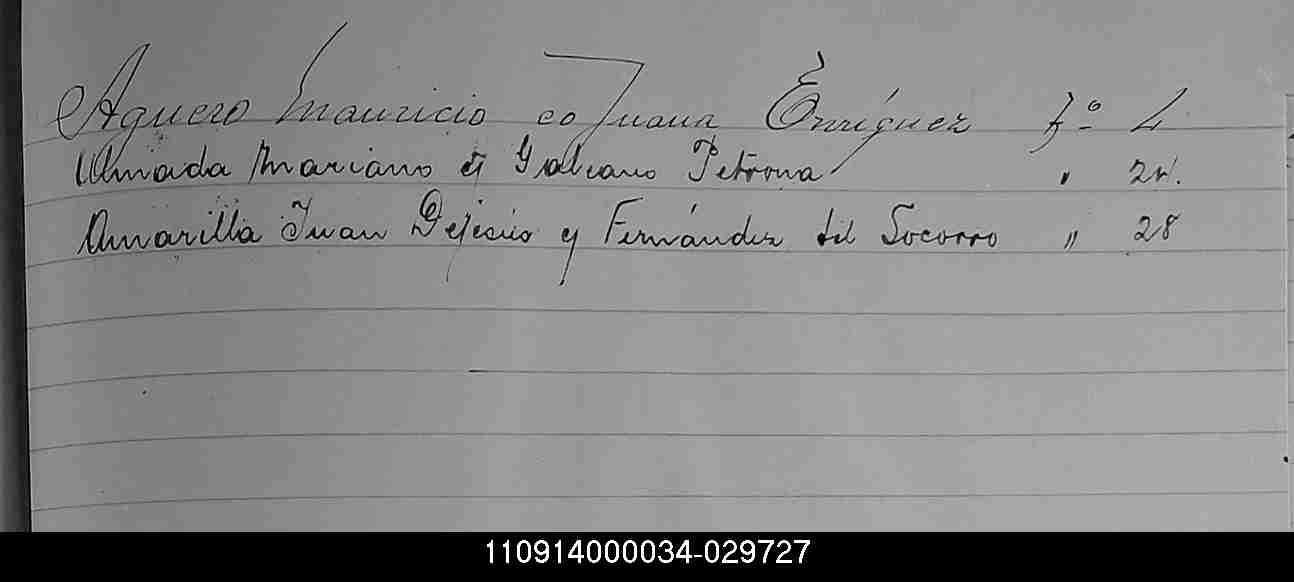 Aguero Mauricio co Juana Enríquez fº 4
Almada Mariano y Galeano Petrona " 24.
Amarilla Juan Dejesús y Fernández del Socorro " 28
110914000034-029727